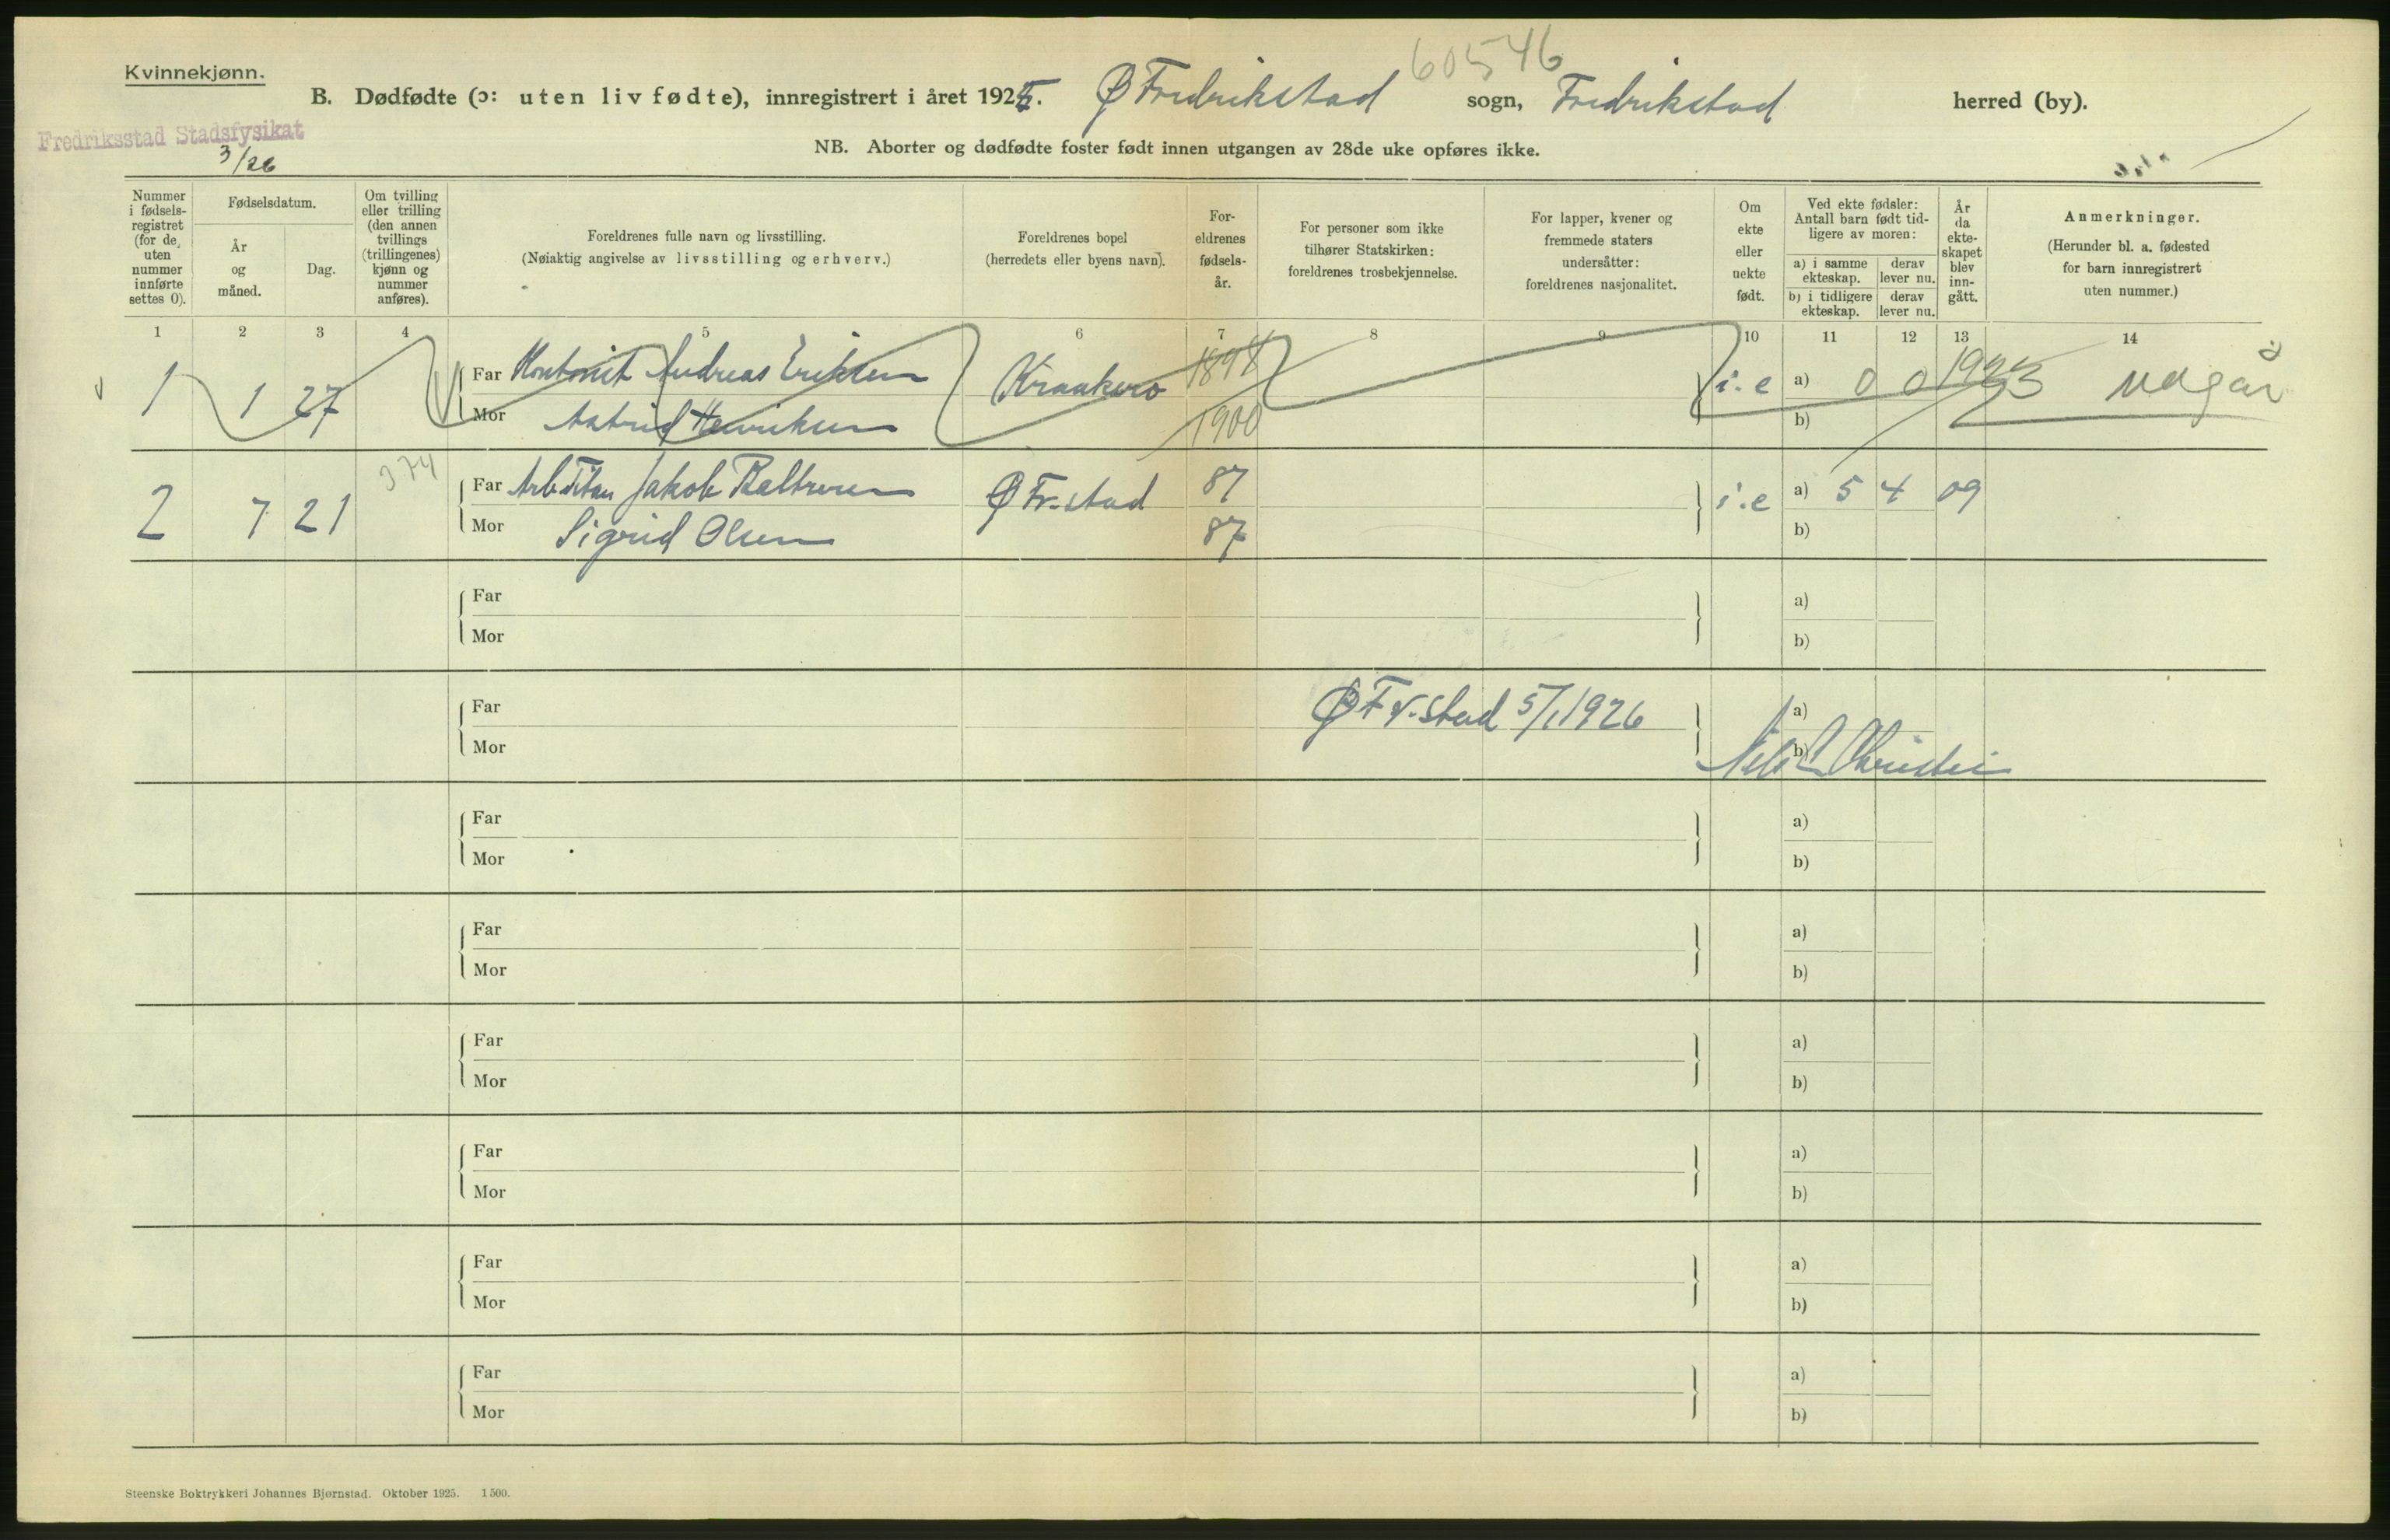 Kvinnekjønn.
60546
B. Dødfødte (ɔ: uten liv fødte), innregistrert i året 1925. Ø Fredrikstad sogn, Fredrikstad herred (by).
Fredriksstad Stadsfysikat
3/26
NB. Aborter og dødfødte foster født innen utgangen av 28de uke opføres ikke.
Nummer i fødsels-registret (for de, uten nummer innførte settes 0).
Fødselsdatum.
År og måned.
Dag.
Om tvilling eller trilling (den annen tvillings (trillingenes) kjønn og nummer anføres).
Foreldrenes fulle navn og livsstilling.
(Nøiaktig angivelse av livsstilling og erhverv.)
Foreldrenes bopel
(herredets eller byens navn).
For-eldrenes fødsels-år.
For personer som ikke tilhører Statskirken: foreldrenes trosbekjennelse.
For lapper, kvener og fremmede staters undersåtter: foreldrenes nasjonalitet.
Om ekte eller uekte født.
Ved ekte fødsler: Antall barn født tid-ligere av moren:
a) i samme ekteskap. derav lever nu.
b) i tidligere ekteskap. derav lever nu.
År da ekte-skapet blev inn-gått.
Anmerkninger.
(Herunder bl. a. fødested for barn innregistrert uten nummer.)
1 2 3 4 5 6 7 8 9 10 11 12 13 14
1 1 27 Far Andreas Eriksen Kraakerø 1898 i.e a) 0 0 1923 Udgår
Mor Astrid Henriksen 1900 b)
374
2 7 21 Far Jakob Ø Fr.stad 87 i.e a) 5 4 09
Mor Sigrid Olsen 87 b)
Far a)
Mor b)
Far Ø Fr.stad 5/1 1926 a)
Mor b) Christie
Far a)
Mor b)
Far a)
Mor b)
Far a)
Mor b)
Far a)
Mor b)
Far a)
Mor b)
Far a)
Mor b)
Steenske Boktrykkeri Johannes Bjørnstad. Oktober 1925. 1500.